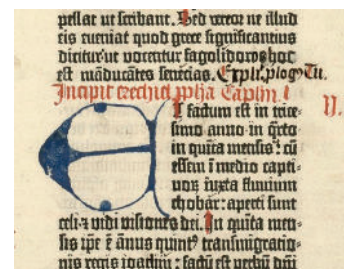 pellat ut scribant. Sed vereor ne illud
eis eueniat quod grece significantius
dicitur ut vocentur fagolidoros hoc
est māducātes senecias. Explic. plogꝰ Tu.
Incipit ezechiel ꝓpħa Caplm. I
Et factum est in trice-
simo anno in q̄rto
in quīta mensis: cū
essem ī medio capti-
uoꝝ iuxta fluuium
chobar: aperti sunt
celi ⁊ vidi visiones dei. In quīta men-
sis ipe ē ānus quintꝰ transmigratio-
nis regis ioachin: factū est verbū dn̄i